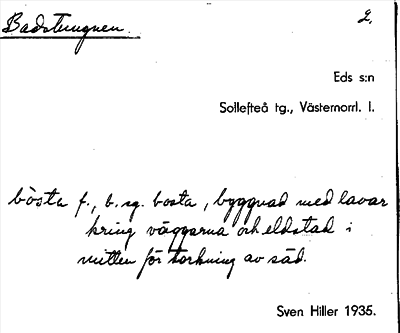 Badstugnen. 2.
Eds s:n
Sollefteå tg., Västernorrl. l.
bòsta f., b. sg. bosta, byggnad med lavar
kring väggarna och eldstad i
mitten för torkning av säd.
Sven Hiller 1935.